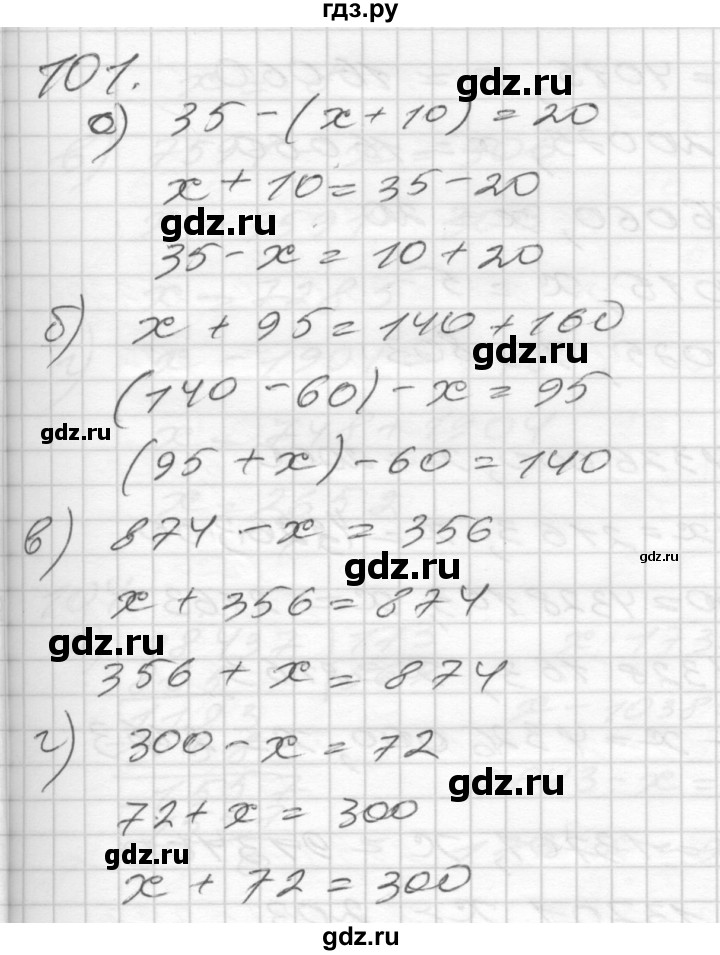 гдз.ру
101.
а) 35 - (x + 10) = 20
gdz.ru
x + 10 = 35 - 20
gdz.ru
35 - x = 10 + 20
б) x + 95 = 140 + 160
gdz.ru
(140 - 60) - x = 95
gdz.ru
(95 + x) - 60 = 140
в) 874 - x = 356
gdz.ru
gdz.ru
x + 356 = 874
gdz.ru
356 + x = 874
г) 300 - x = 72
gdz.ru
72 + x = 300
gdz.ru
x + 72 = 300
gdz.ru